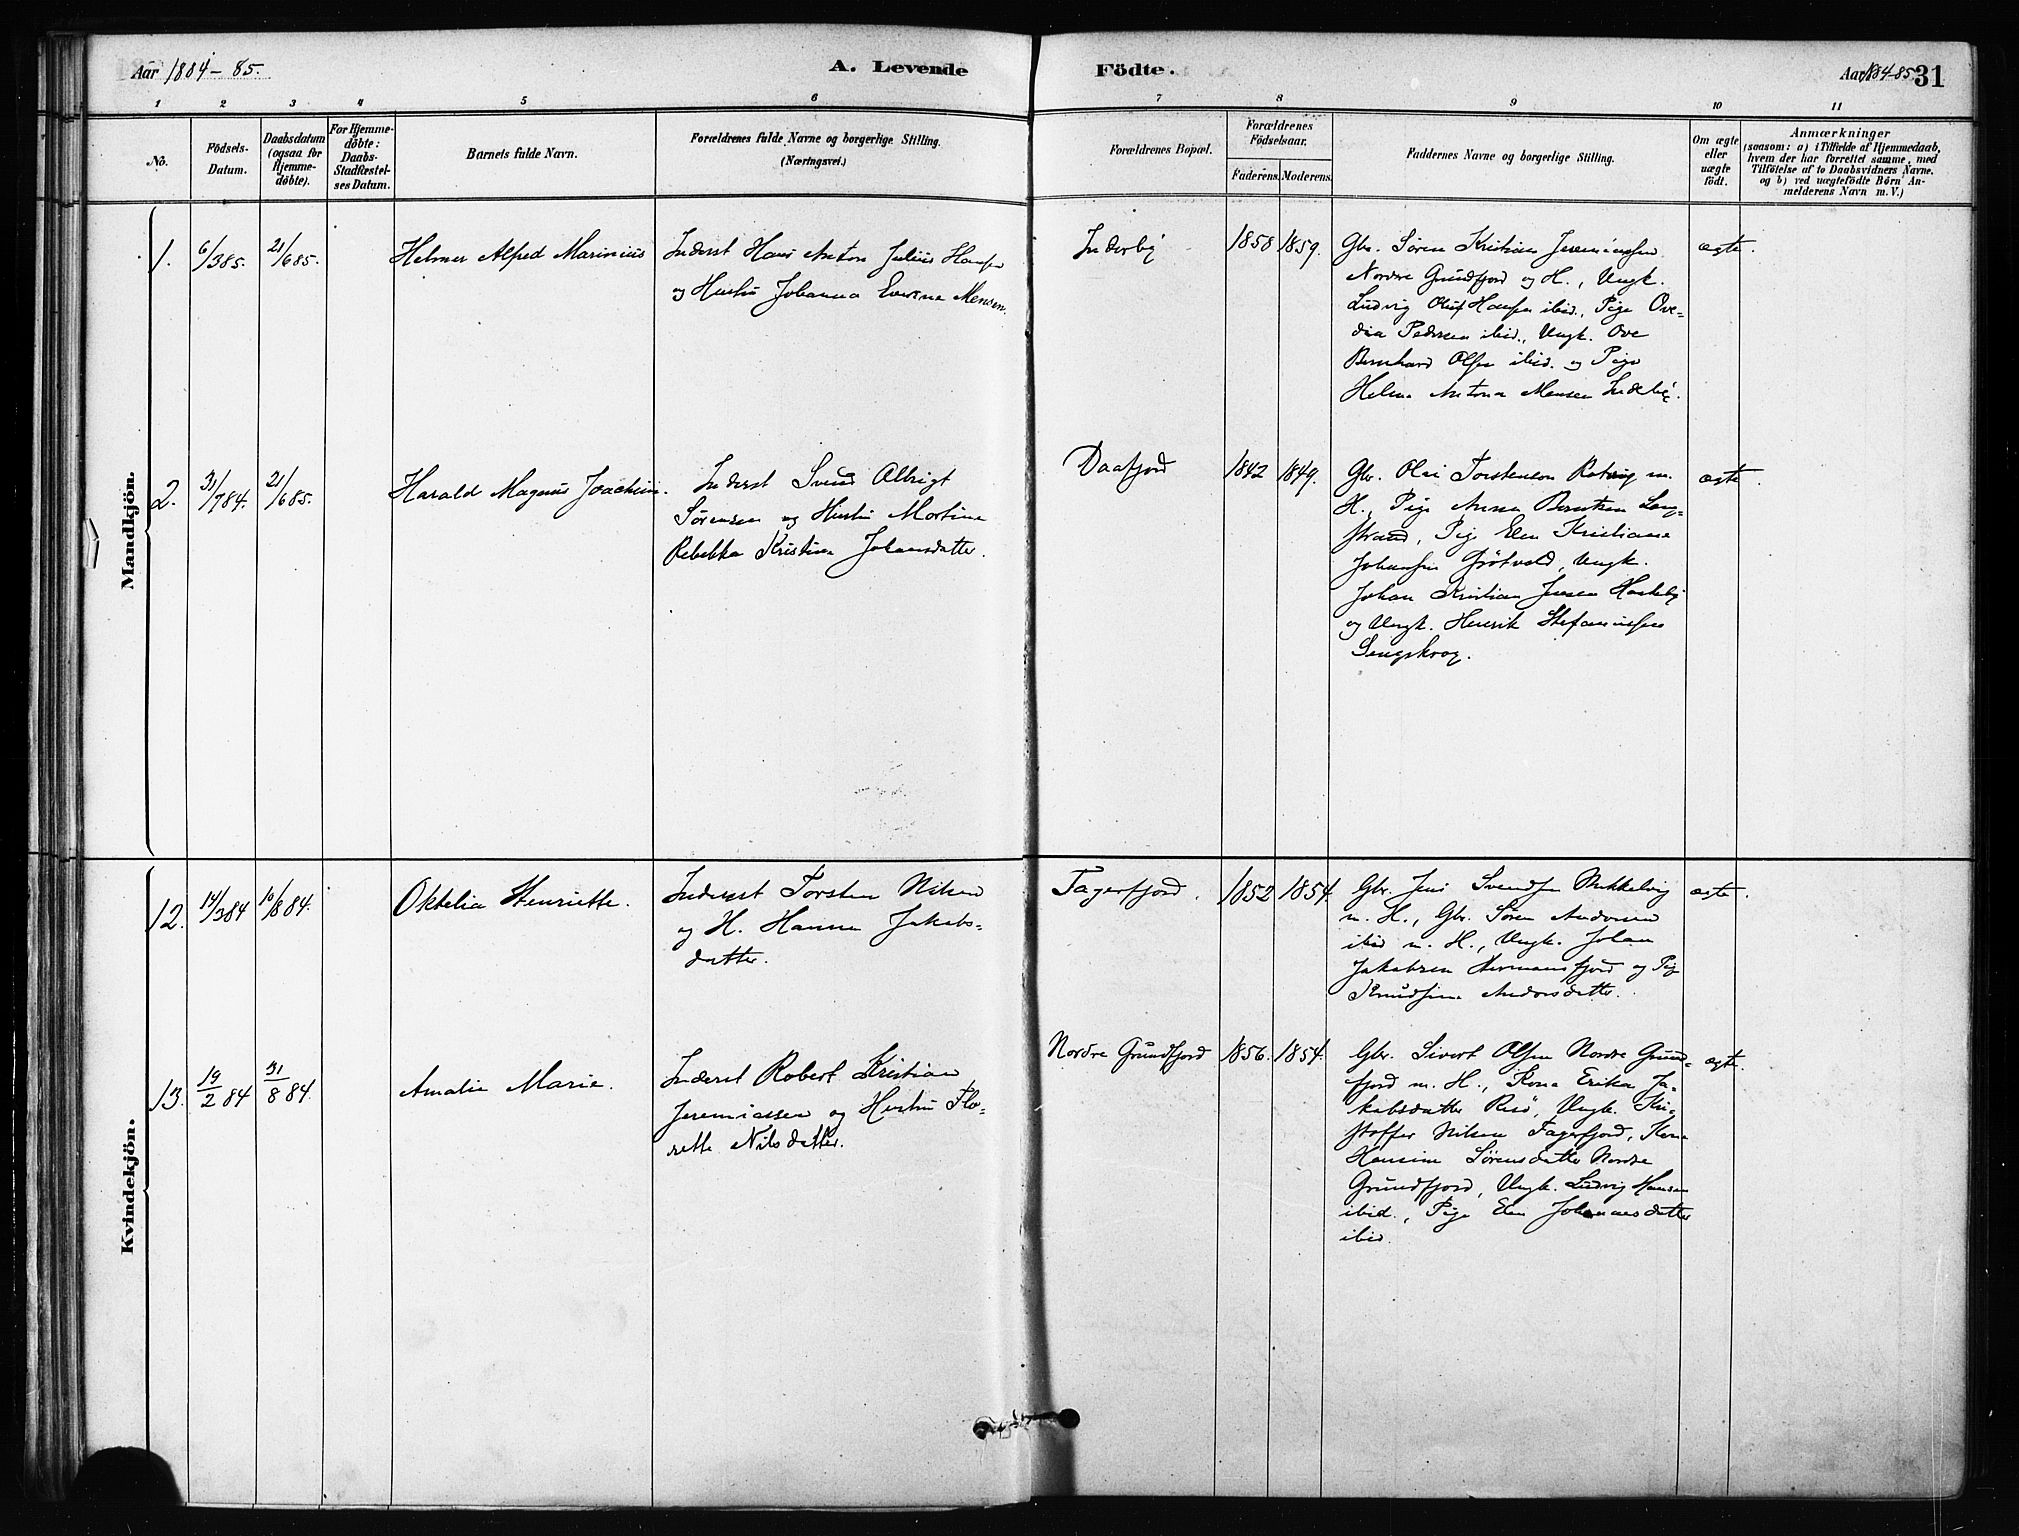 Aar 1884-85.
A. Levende
Födte.
Aar 1884-85
31
1 2 3 4 5 6 7 8 9 10 11
No.
Födsels-
Datum.
Daabsdatum
(ogsaa for
Hjemme-
döbte).
For Hjemme-
döbte:
Daabs-
Stadfæstel-
ses Datum.
Barnets fulde Navn.
Forældrenes fulde Navne og borgerlige Stilling.
(Næringsvei.)
Forældrenes Bopæl.
Forældrenes
Födselsaar.
Faderens. Moderens.
Faddernes Navne og borgerlige Stilling.
Om ægte
eller
uægte
födt.
Anmærkninger
(saasom: a) i Tilfælde af Hjemmedaab,
hvem der har forrettet samme, med
Tilföielse af to Daabsvidners Navne,
og b) ved uægtefödte Börn An-
melderens Navn m. V.)
Mandkjön.
1.
6/385.
21/685.
Helmer Alfred Marinius
Inderst Hans Anton Julius Hansen
og Hustru Johanna Everine Mensen.
Inderby
1858
1859.
Gbr. Søren Kristian Jeremiassen
Nordre Grundfjord og H., Ungk.
Ludvig Oluf Hansen ibid., Pige Ove-
dia Pedersen ibid., Ungk. Ove
Bernhard Olsen ibid. og Pige
Helene Antona Mensen Inderby.
ægte.
2.
31/784.
21/685.
Harald Magnus Joachim.
Inderst Svend Albrigt
Sørensen og Hustru Martine
Rebekka Kristine Johansdatter.
Daafjord
1842
1849.
Gbr. Olai Torstensen Rotvig m.
H., Pige Anna Berntsen Lang-
strand, Pige Elen Kristiane
Johansen Grøtvold, Ungk.
Johan Kristian Jensen Haskeby
og Ungk. Henrik Stefanussen
Lengskrog.
ægte.
Kvindekjön.
12.
14/384
10/884.
Oktelia Henriette.
Inderst Torsten Nilsen
og H. Hanna Jakobs-
datter.
Fagerfjord.
1852
1854.
Gbr. Jens Svendsen Mikkelvig
m. H., Gbr. Søren Andersen
ibid m. H., Ungk. Johan
Jakobsen Hermansfjord og Pige
Knudsine Andersdatter.
ægte.
13.
19/2 84
31/8 84.
Amalie Marie.
Inderst Robert Kristian
Jeremiassen og Hustru Flo-
rette Nilsdatter.
Nordre Grundfjord
1856.
1854.
Gbr. Sivert Olsen Nordre Grund-
fjord m. H., Kona Erika Ja-
kobsdatter Risø, Ungk. Kri-
stoffer Nilsen Fagerfjord, Kona
Hansine Sørensdatter Nordre
Grundfjord, Ungk. Ludvig Hansen
ibid., Pige Elen Johannesdatter
ibid.
ægte.